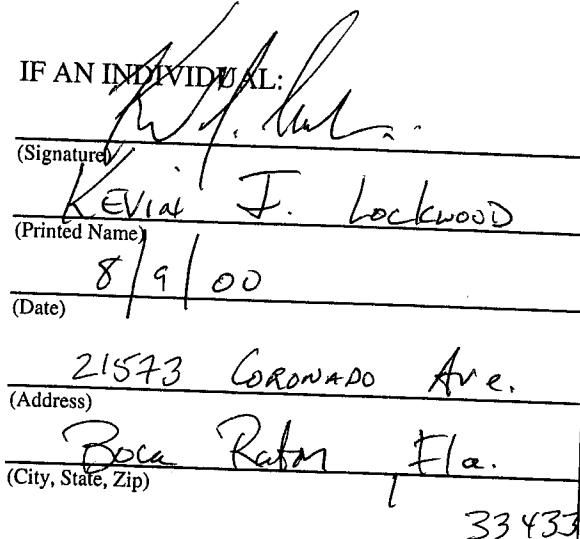 IF AN INDIVIDUAL:
(Signature)
KEVIN J. LockwooD
(Printed Name)
8/9/00
(Date)
21573 CORONADO Ave.
(Address)
Boca Raton, Fla.
(City, State, Zip)
33433